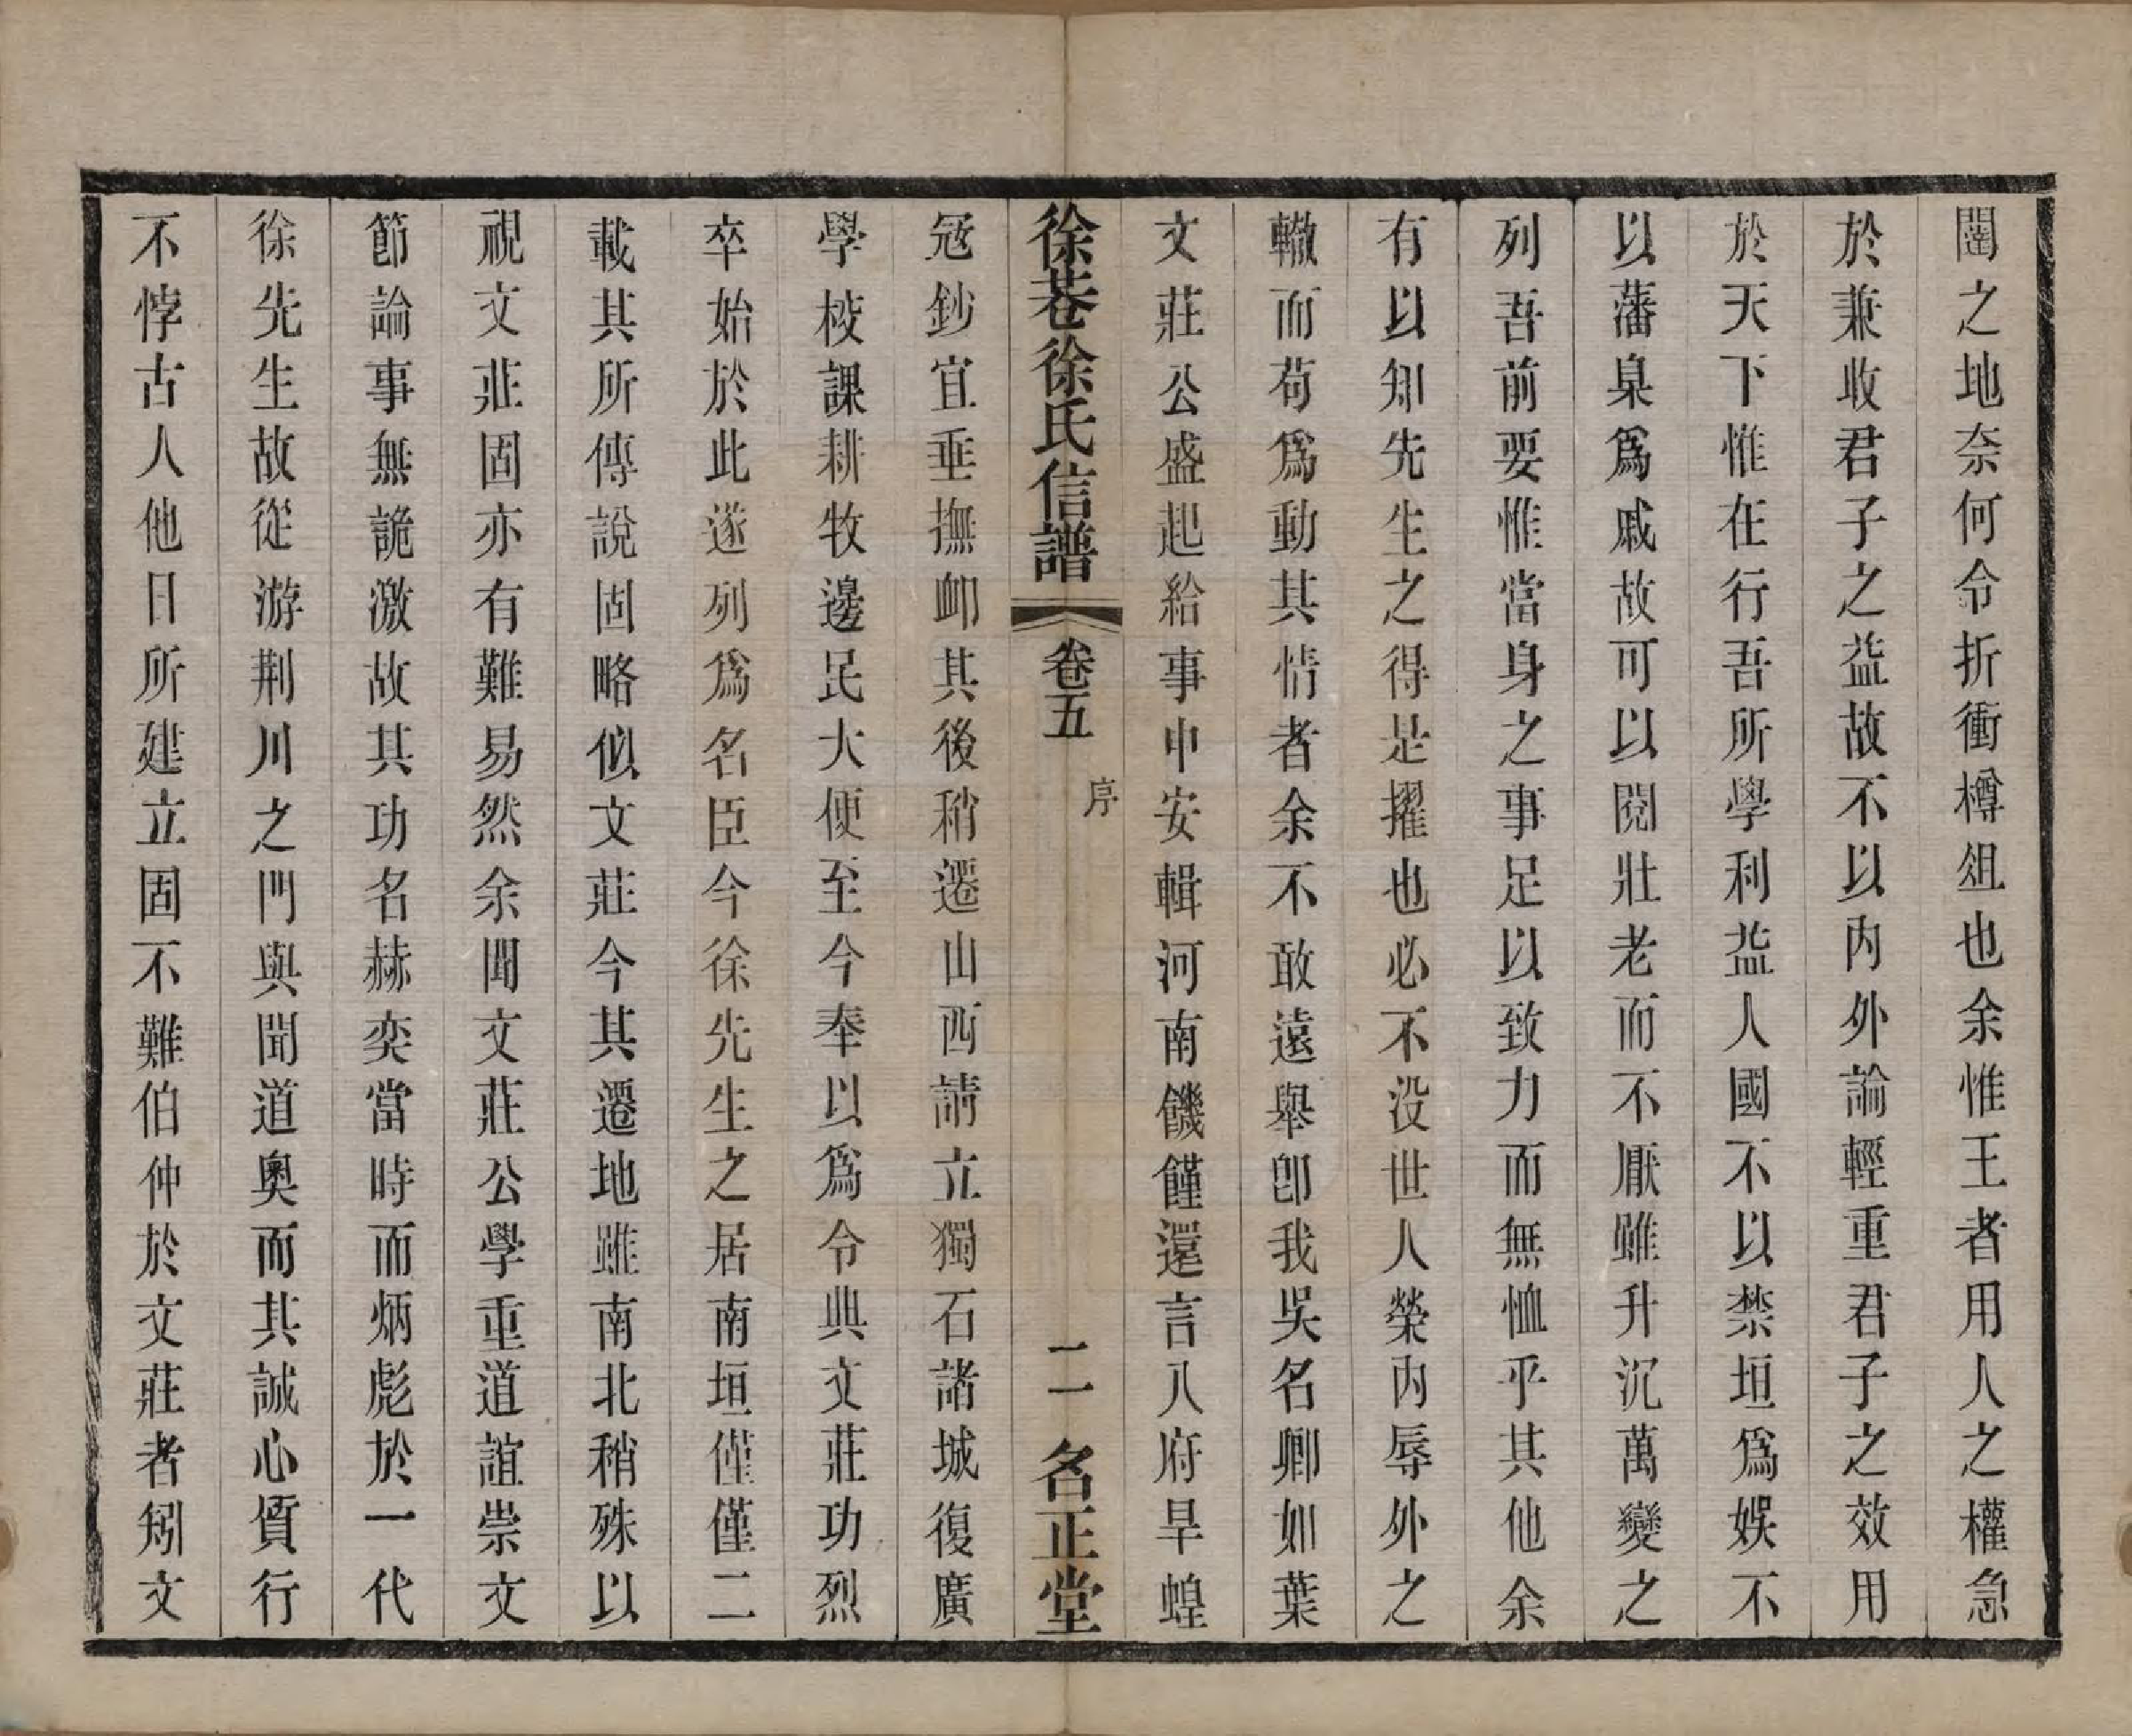 閫之地奈何令折衝樽俎也余惟王者用人之權急
於兼收君子之益故不以内外論輕重君子之效用
於天下惟在行吾所學利益人國不以禁垣爲娛不
以藩臬爲戚故可以閱壯老而不厭雖升沉萬變之
列吾前要惟當身之事足以致力而無恤乎其他余
有以知先生之得是擢也必不没世人榮内辱外之
轍而苟爲動其情者余不敢遠舉卽我吳名卿如葉
文莊公盛起給事中安輯河南饑饉還言八府旱蝗
徐巷徐氏信譜 卷五 序 二 名正堂
冦鈔宜垂撫卹其後稍遷山西請立獨石諸城復廣
學校課耕牧邊民大便至今奉以爲令典文莊功烈
卒始於此遂列爲名臣今徐先生之居南垣僅僅二
載其所傳說固略似文莊今其遷地雖南北稍殊以
視文莊固亦有難易然余聞文莊公學重道誼崇文
節論事無詭激故其功名赫奕當時而炳彪於一代
徐先生故從游荆川之門與聞道奧而其誠心質行
不悖古人他日所建立固不難伯仲於文莊者矧文